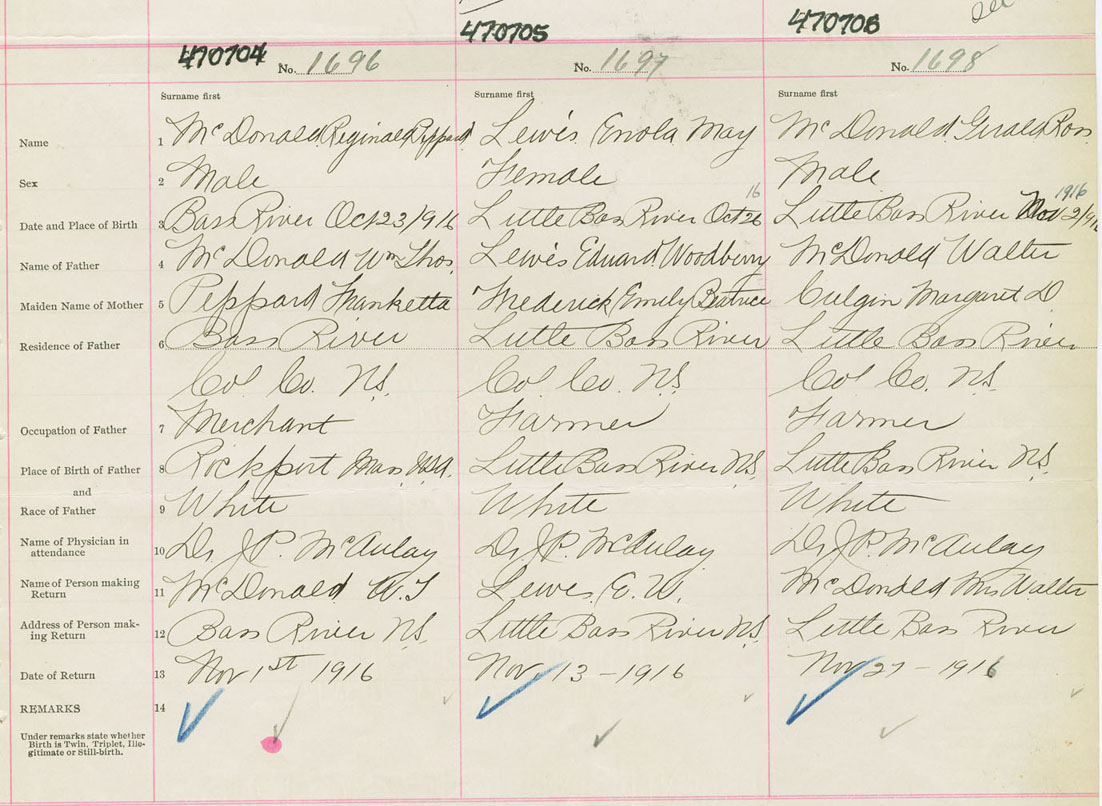 470704 470705 470706
No. 1696 No. 1697 No. 1698
Surname first Surname first Surname first
Name 1 McDonald Reginald Peppard Lewis Enola May McDonald Gerald Ross
Sex 2 Male Female Male
Date and Place of Birth 3 Bass River Oct 23/916 Little Bass River Oct 26 16 Little Bass River Nov 2/916 1916
Name of Father 4 McDonald Wm Thos. Lewis Edward Woodberry McDonald Walter
Maiden Name of Mother 5 Peppard Frederick Emily Beatrice Margaret D
Residence of Father 6 Bass River Little Bass River Little Bass River
Col Co. N.S. Col Co. N.S. Col Co. N.S.
Occupation of Father 7 Merchant Farmer Farmer
Place of Birth of Father 8 Rockport Mass. U.S.A. Little Bass River N.S. Little Bass River N.S.
and
Race of Father 9 White White White
Name of Physician in
attendance 10 Dr J.P. McAulay Dr J.P. McAulay Dr J.P. McAulay
Name of Person making
Return 11 McDonald W.T Lewis, E. W. McDonald Mrs Walter
Address of Person mak-
ing Return 12 Bass River N.S. Little Bass River N.S. Little Bass River
Date of Return 13 Nov 1st 1916 Nov 13 - 1916 Nov 27 - 1916
REMARKS 14
Under remarks state whether
Birth is Twin, Triplet, Ille-
gitimate or Still-birth.